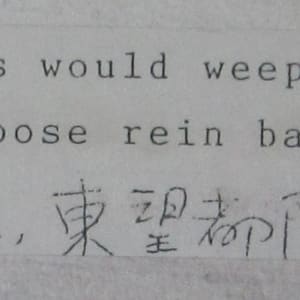 s would weep
oose rein ba
, 東望都門